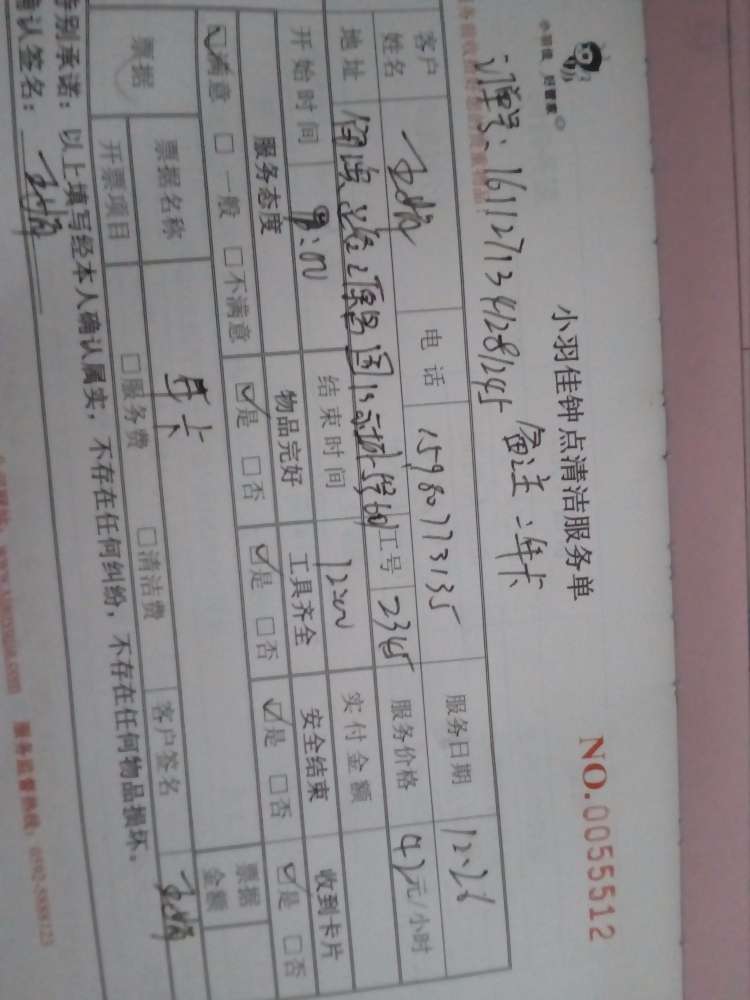 小羽佳 好管家
小羽佳钟点清洁服务单
NO.0055512
备注:年卡
客户姓名 电话 15980773135 服务日期 12.28
地址 工号 2345 服务价格 42元/小时
开始时间 9:00 结束时间 12:00 实付金额
服务态度 物品完好 工具齐全 安全结束 收到卡片
☑满意 □一般 □不满意 ☑是 □否 ☑是 □否 ☑是 □否 ☑是 □否
票据 票据名称 年卡 票据金额
开票项目 □服务费 □清洁费 客户签名
特别承诺:以上填写经本人确认属实,不存在任何纠纷,不存在任何物品损坏。
确认签名:
服务监督热线:0592-5888123